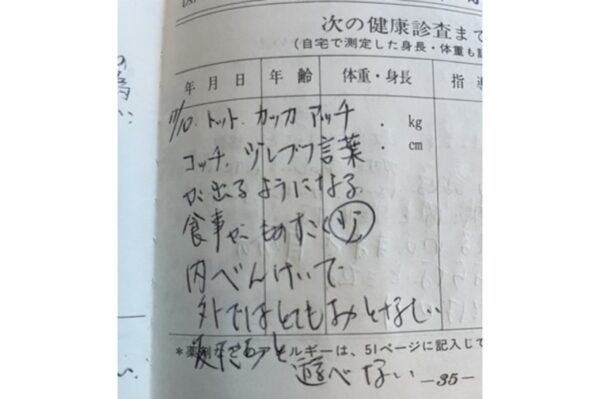 次の健康診査まで
(自宅で測定した身長・体重も
年月日 年齢 体重・身長 指
トット カッカ アッチ
kg
コッチ
言葉
cm
が出るようになる
食事がものすごく
内べんけいで
外ではとてもおとなしい
*薬剤などアレルギーは、51ページに記入して
遊べない
-35-